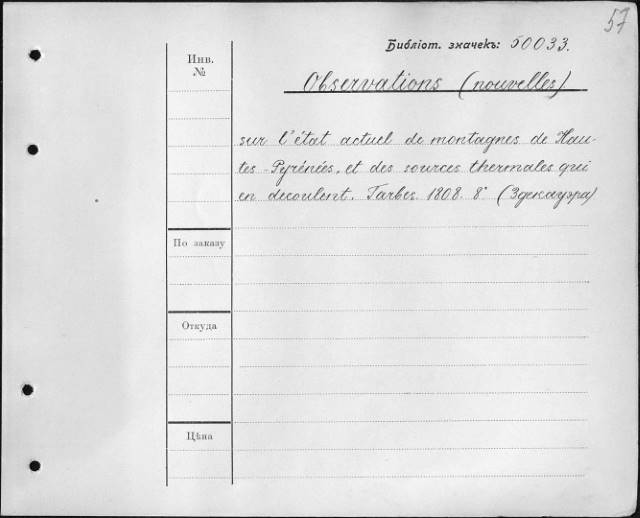 57
Библіот. значекъ: 50033.
Инв.
№
Observations (nouvelles)
sur l'état actuel de montagnes de Hau-
tes-Pyrénées, et des sources thermales qui
en decoulent. Tarbes. 1808. 8° (Здекауэра)
По заказу
Откуда
Цѣна